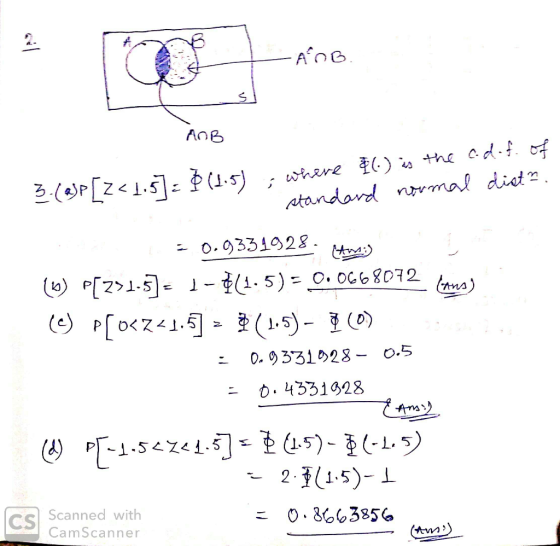 2.
A B
A^c∩B
S
A∩B
3.(a) P[Z<1.5] = Φ(1.5) ; where Φ(.) is the c.d.f. of
standard normal distn.
= 0.9331928. (Ans:)
(b) P[Z>1.5] = 1 - Φ(1.5) = 0.0668072 (Ans)
(c) P[0<Z<1.5] = Φ(1.5) - Φ(0)
= 0.9331928 - 0.5
= 0.4331928
(Ans:)
(d) P[-1.5<Z<1.5] = Φ(1.5) - Φ(-1.5)
= 2.Φ(1.5) - 1
= 0.8663856
(Ans:)
CS Scanned with
CamScanner